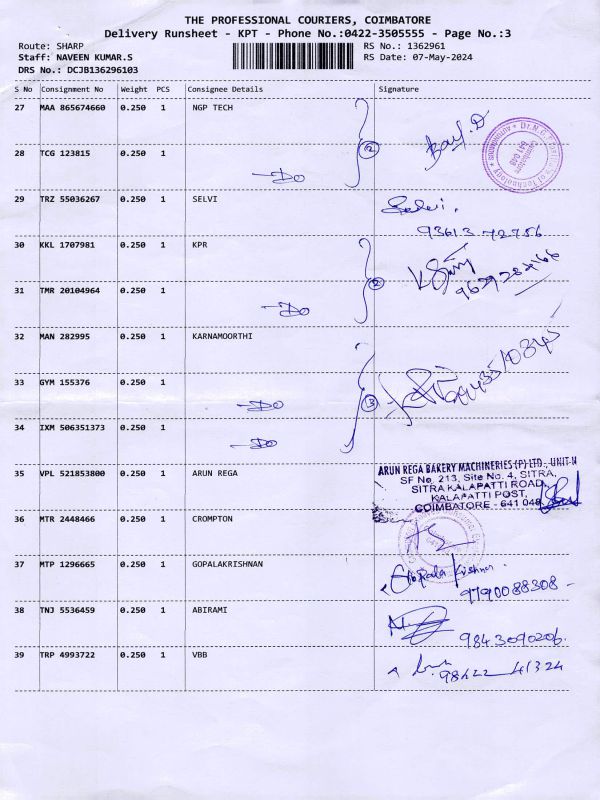 THE PROFESSIONAL COURIERS, COIMBATORE
Delivery Runsheet - KPT - Phone No.:0422-3505555 - Page No.:3
Route: SHARP RS No.: 1362961
Staff: NAVEEN KUMAR.S RS Date: 07-May-2024
DRS No.: DCJB136296103
S No Consignment No Weight PCS Consignee Details Signature
27 MAA 865674660 0.250 1 NGP TECH
28 TCG 123815 0.250 1 Do 2
29 TRZ 55036267 0.250 1 SELVI Selvi.
93613 72756
30 KKL 1707981 0.250 1 KPR
31 TMR 20104964 0.250 1 Do 2
32 MAN 282995 0.250 1 KARNAMOORTHI
33 GYM 155376 0.250 1 Do 3
34 IXM 506351373 0.250 1 Do
35 VPL 521853800 0.250 1 ARUN REGA
ARUN REGA BAKERY MACHINERIES (P) LTD., UNIT-II
SF No. 213, Site No. 4, SITRA,
SITRA KALAPATTI ROAD,
KALAPATTI POST,
COIMBATORE - 641 048
36 MTR 2448466 0.250 1 CROMPTON
37 MTP 1296665 0.250 1 GOPALAKRISHNAN Gopala Krishnan
9790088308
38 TNJ 5536459 0.250 1 ABIRAMI
9843090206.
39 TRP 4993722 0.250 1 VBB
98422 41324